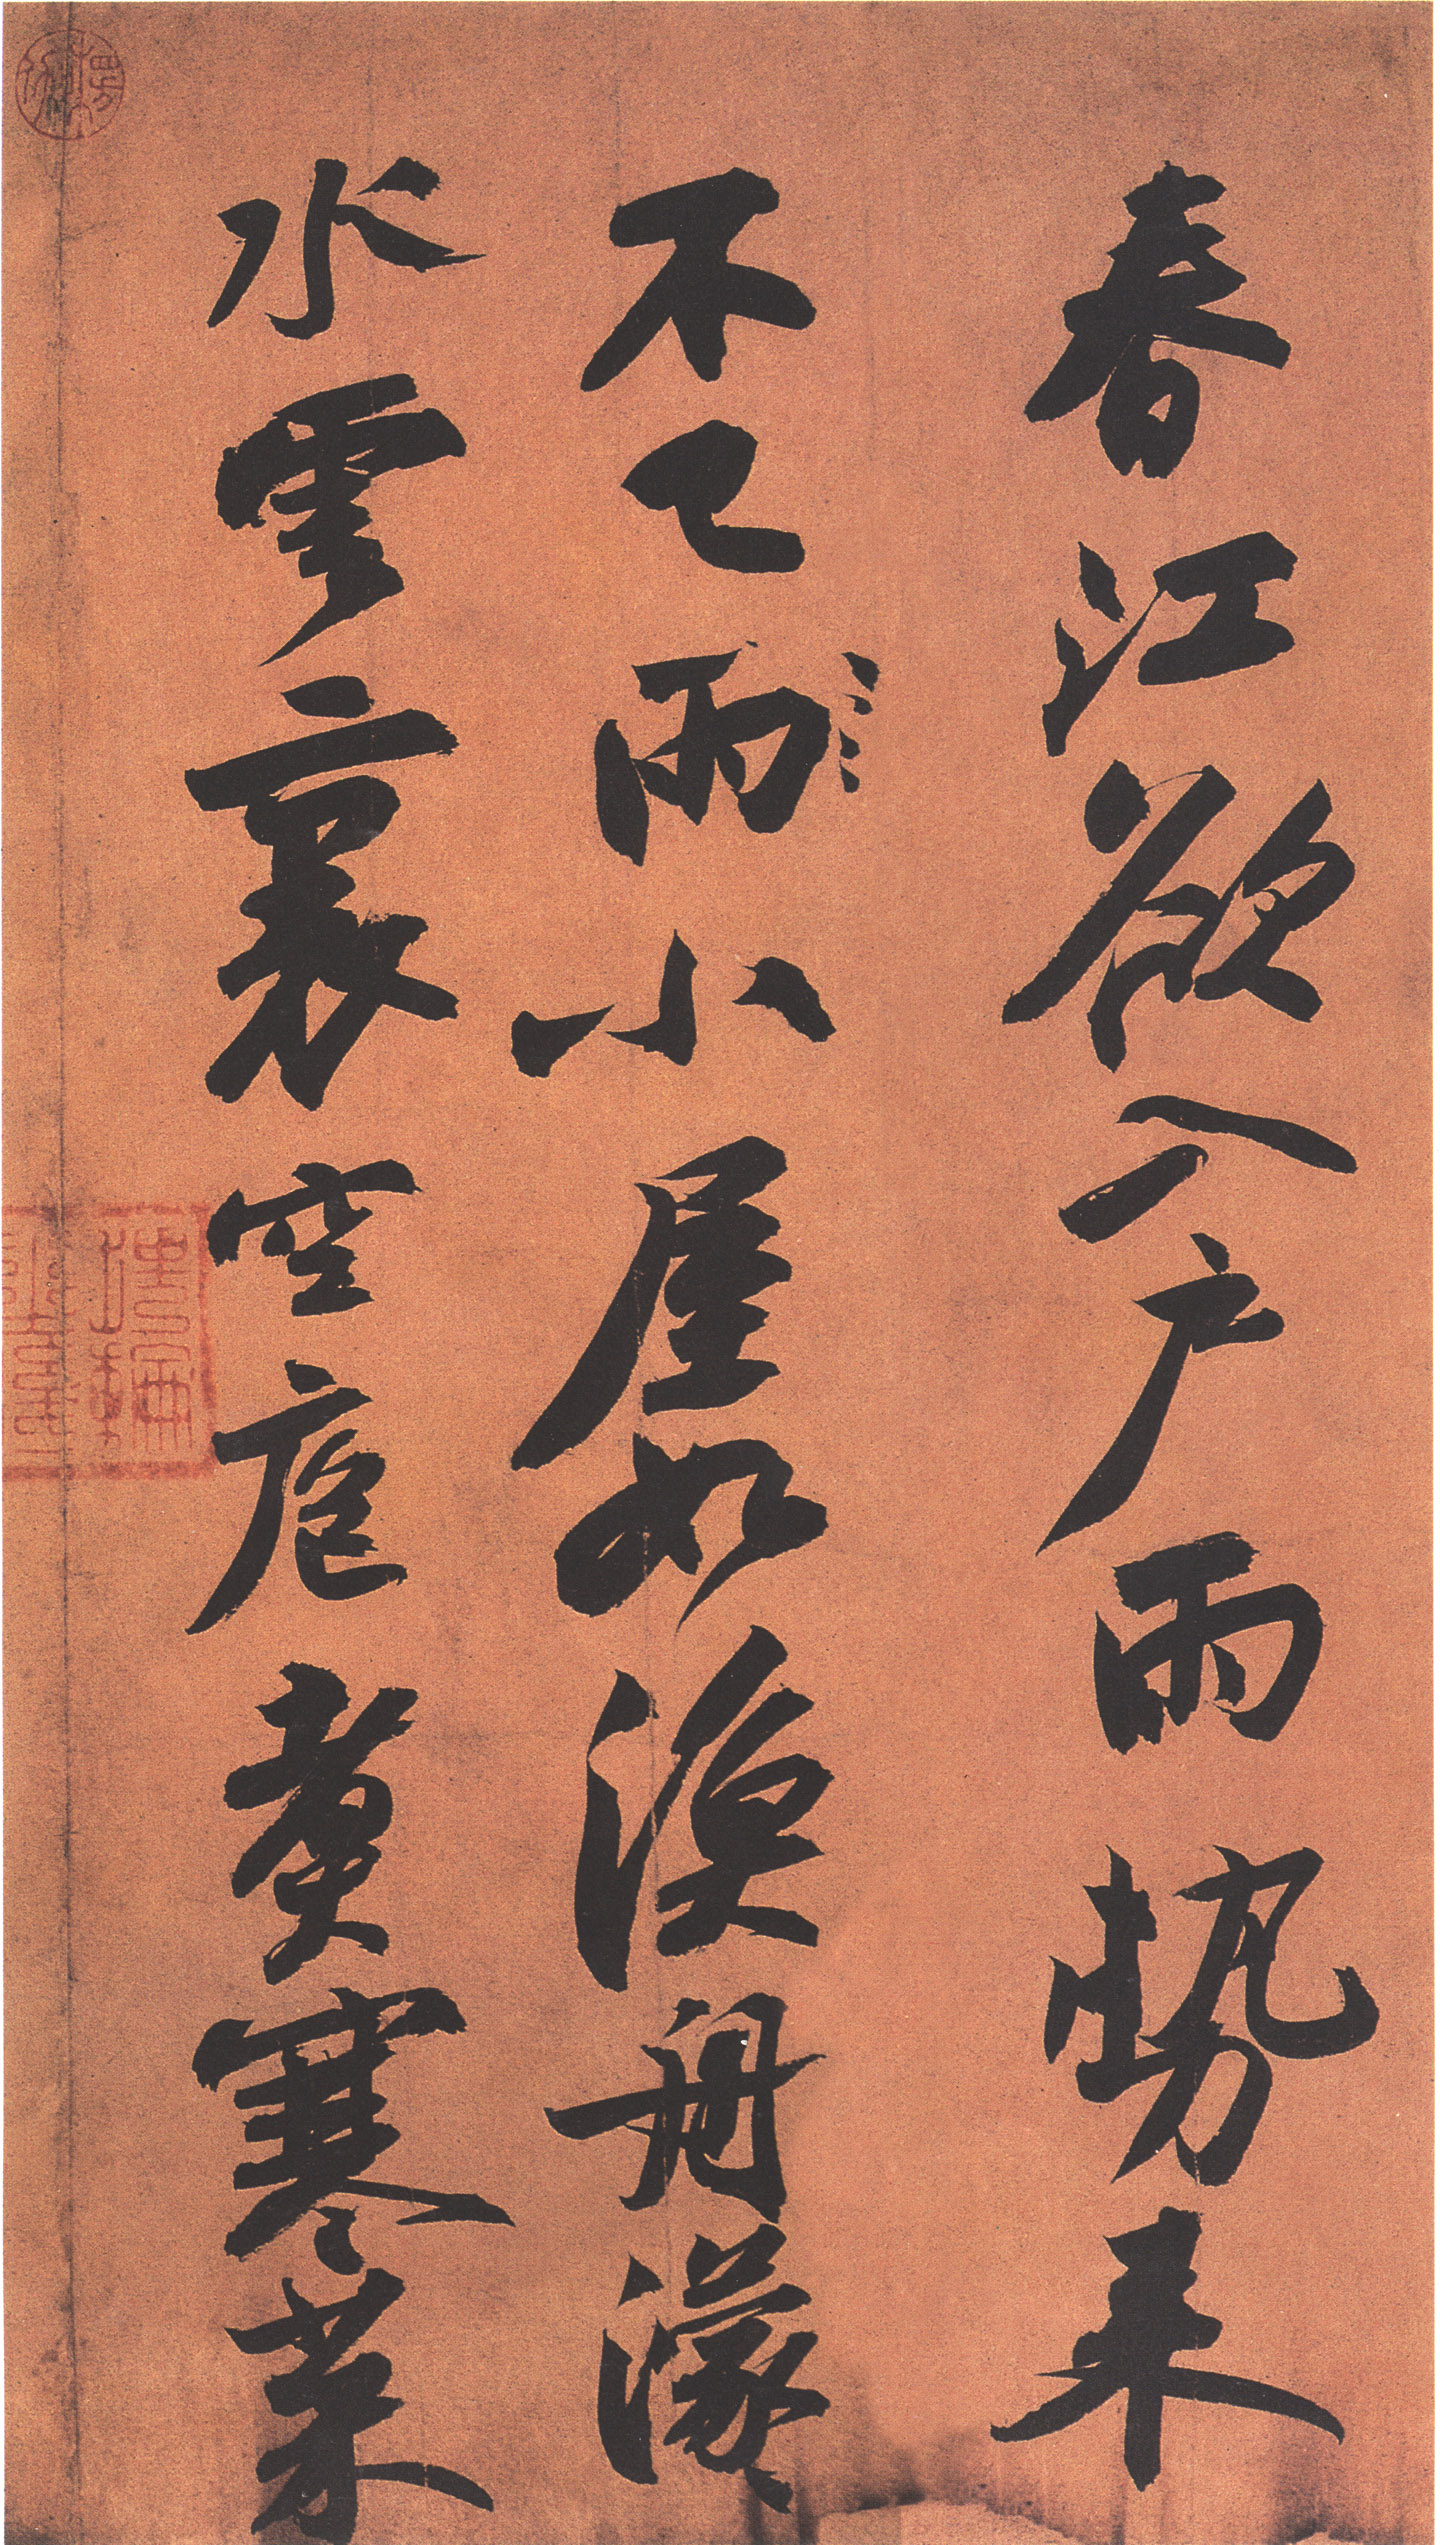 春江欲入戶雨勢來
不已雨小屋如漁舟濛〻
水雲裏空庖煑寒菜